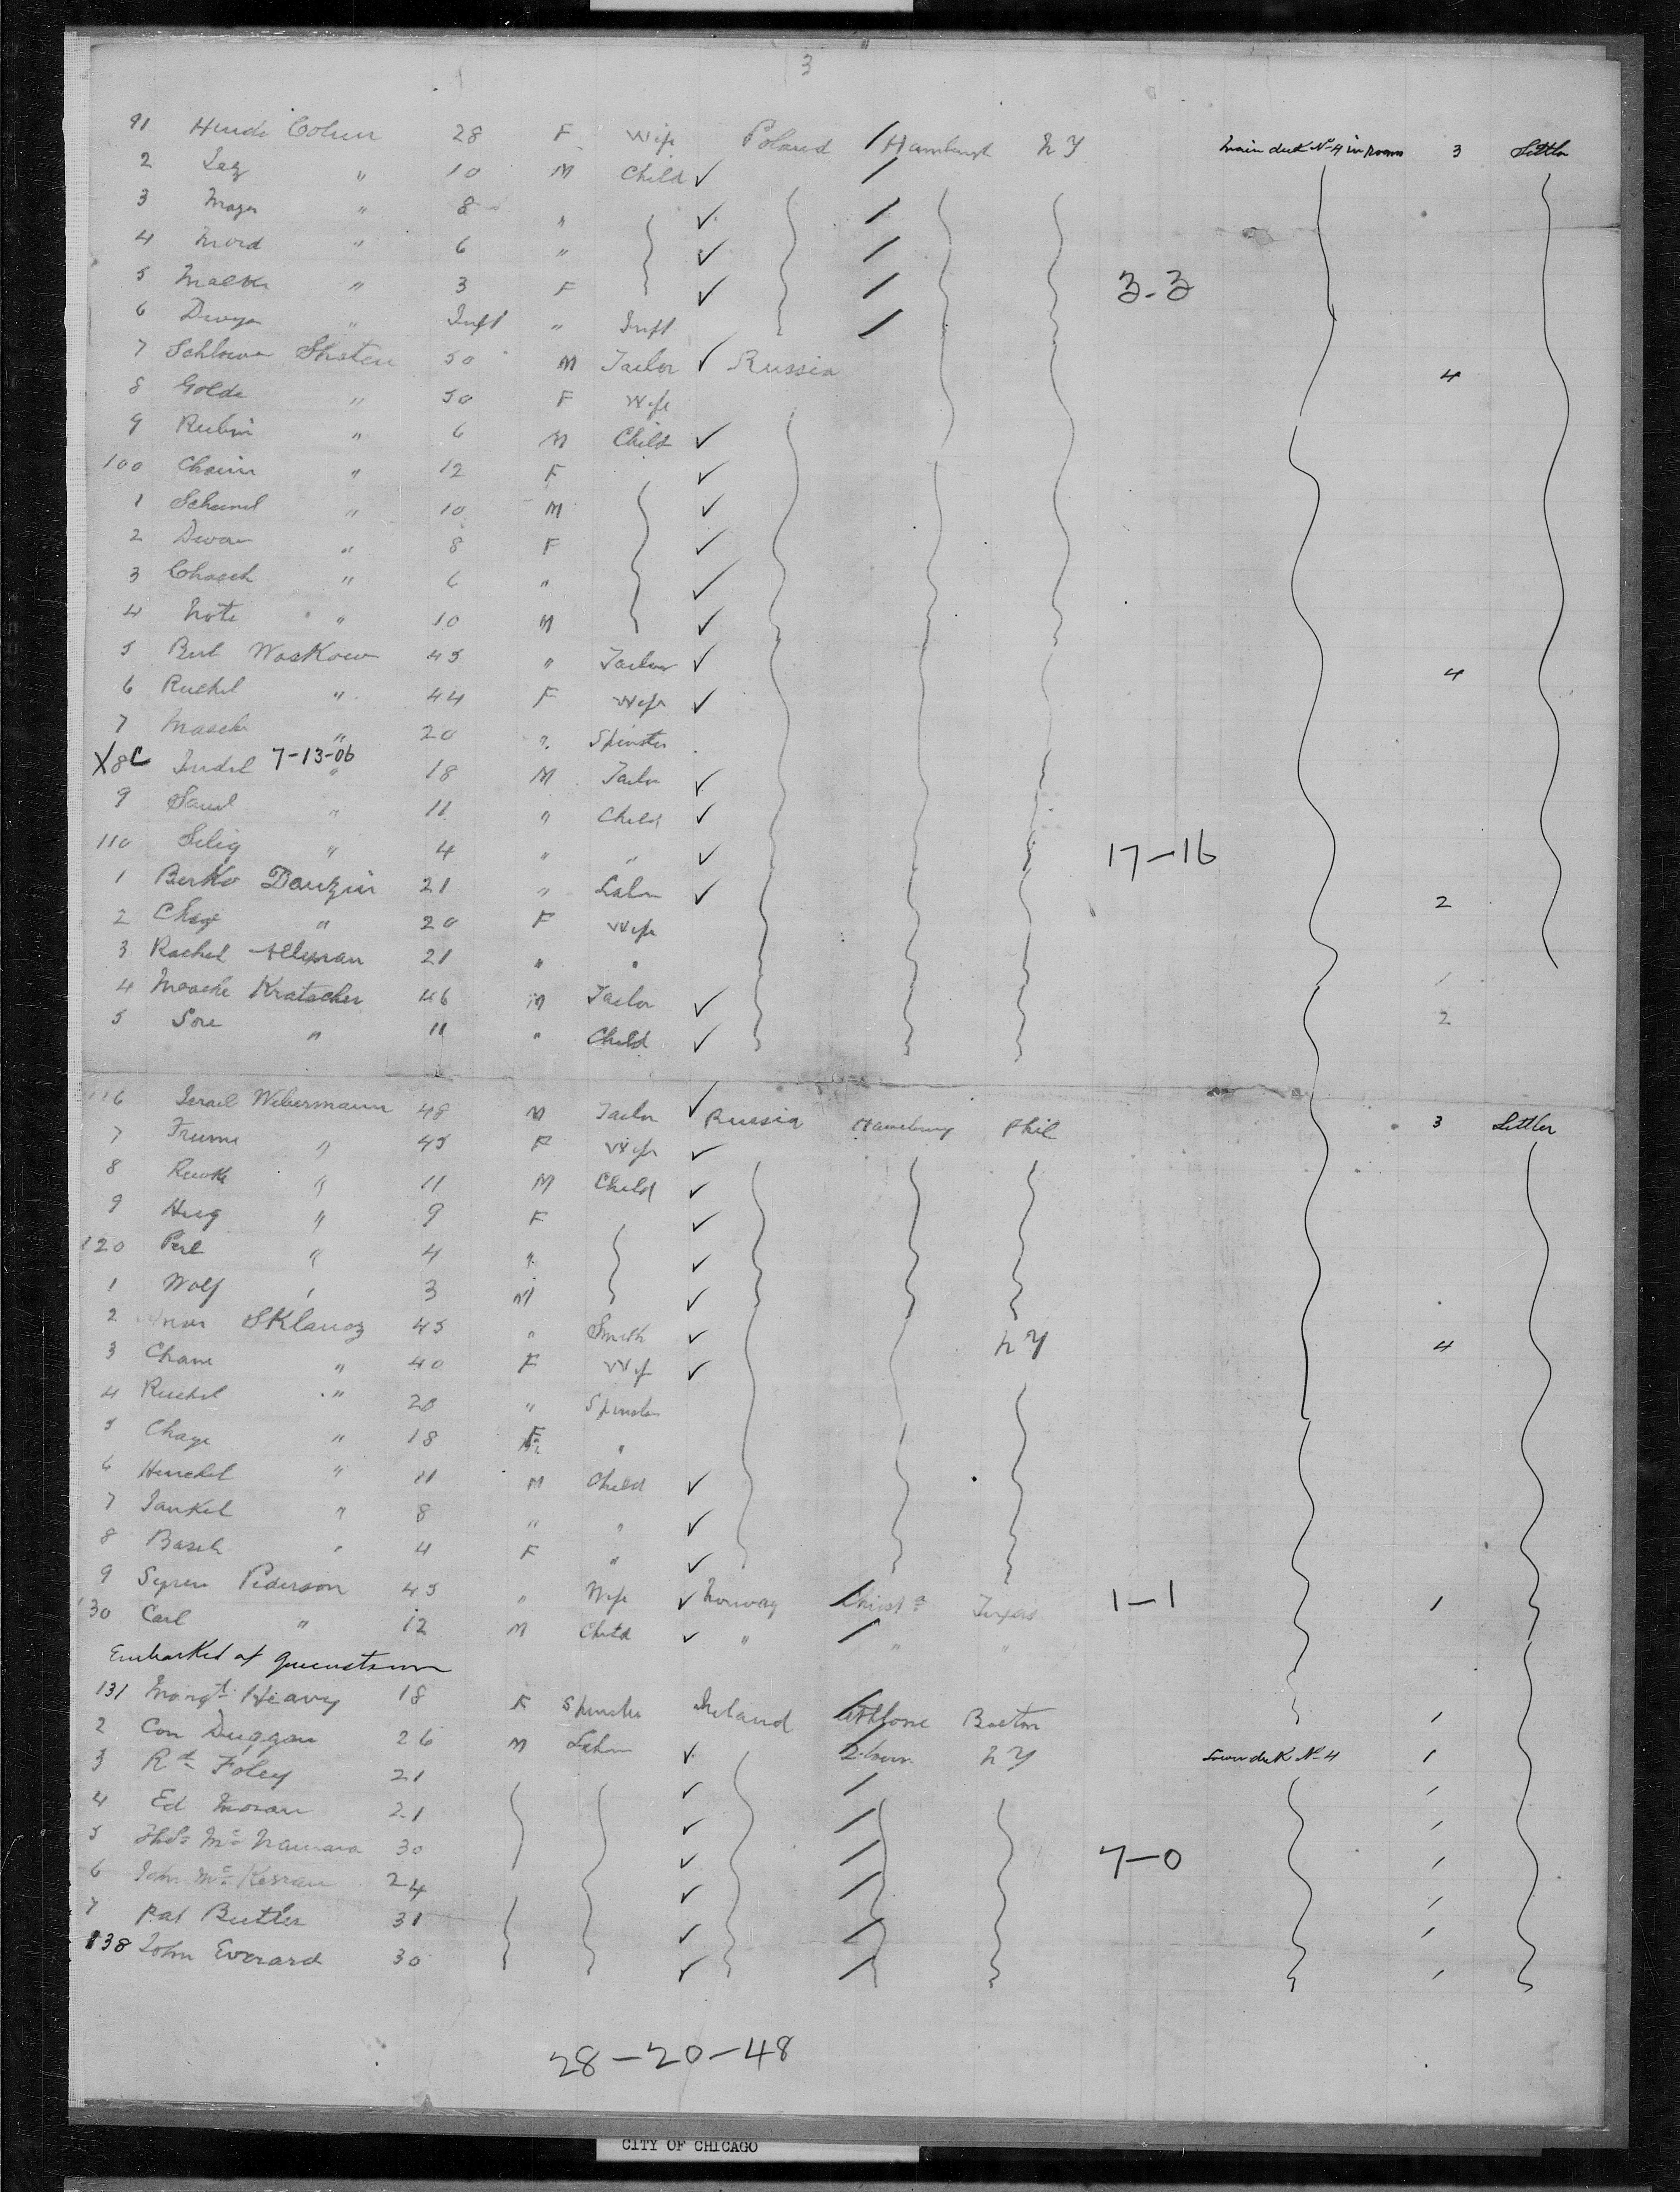 3
91 Hinde Cohen 28 F Wife Poland Hamburgh N Y Main deck No 4 in room 3 Settler
2 Laz " 10 M Child ✓
3 " 8 " ✓
4 Mord " 6 " ✓
5 " 3 F ✓ 3-3
6 Dwya " Inft " Inft
7 50 M Tailor ✓ Russia 4
8 Golde " 50 F Wife
9 Rubin " 6 M Child ✓
100 Chaim " 12 F ✓
1 " 10 M ✓
2 " 8 F ✓
3 " 6 " ✓
4 Note " 10 M ✓
5 Berl Waskow 45 " Tailor ✓ 4
6 Ruchel " 44 F Wife ✓
7 " 20 " Spinster
X8C Judel 7-13-06 " 18 M Tailor ✓
9 " 11 " Child ✓
110 Selig " 4 " " ✓ 17-16
1 Berko Danzin 21 " Labr ✓ 2
2 Chaje " 20 F Wife
3 Rachel Altman 21 " " 1
4 Kratscher 46 M Tailor ✓ 2
5 Sore " 11 " Child ✓
116 Israel Webermann 48 M Tailor ✓ Russia Hamburg Phil 3 Settler
7 Frume " 45 F Wife ✓
8 " 11 M Child ✓
9 " 9 F ✓
120 Perl " 4 " ✓
1 Wolf " 3 M ✓
2 45 " Smith ✓ N Y 4
3 Chane " 40 F Wife ✓
4 Ruchel " 20 " Spinster
5 Chaye " 18 F "
6 Hirschel " 11 M Child ✓
7 Jankel " 8 " " ✓
8 Basch " 4 F " ✓
9 Pederson 45 " Wife ✓ Norway Christa 1-1 1
130 Carl " 12 M Child ✓ " " "
Embarked at Queenstown
131 Margt Heavy 18 F Spinster Ireland Athlone Boston 1
2 Con Duggan 26 M Labr ✓ N Y Lower deck No 4 1
3 Rt Foley 21 ✓ 1
4 Ed Moran 21 ✓ 1
5 Thos McNamara 30 ✓ 7-0 1
6 John 24 ✓ 1
7 Pat Butler 31 ✓ 1
138 John Everard 30 ✓ 1
28-20-48
CITY OF CHICAGO